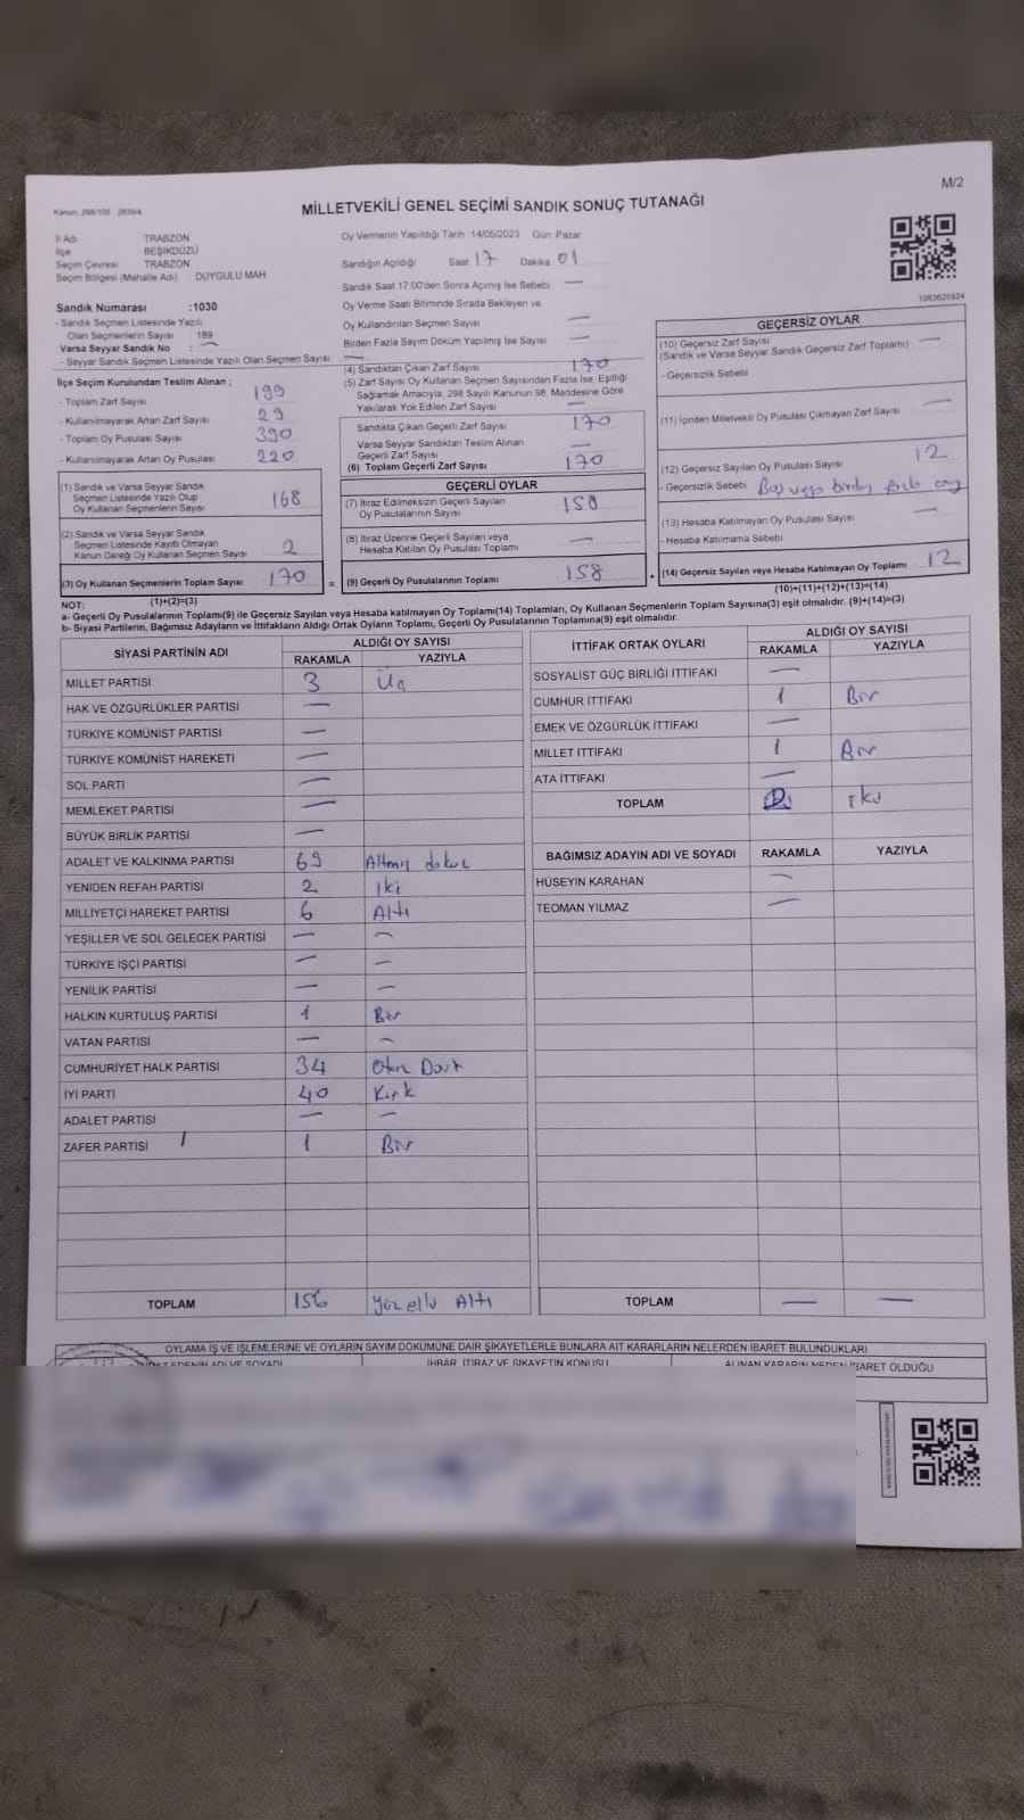 M/2
Kanun: 298/105 2839/4
MİLLETVEKİLİ GENEL SEÇİMİ SANDIK SONUÇ TUTANAĞI
İl Adı TRABZON
İlçe BEŞİKDÜZÜ
Seçim Çevresi TRABZON
Seçim Bölgesi (Mahalle Adı) DUYGULU MAH
Sandık Numarası :1030
- Sandık Seçmen Listesinde Yazılı
Olan Seçmenlerin Sayısı 189
Varsa Seyyar Sandık No : —
- Seyyar Sandık Seçmen Listesinde Yazılı Olan Seçmen Sayısı —
İlçe Seçim Kurulundan Teslim Alınan ;
- Toplam Zarf Sayısı 199
- Kullanılmayarak Artan Zarf Sayısı 29
- Toplam Oy Pusulası Sayısı 390
- Kullanılmayarak Artan Oy Pusulası 220
(1) Sandık ve Varsa Seyyar Sandık
Seçmen Listesinde Yazılı Olup
Oy Kullanan Seçmenlerin Sayısı 168
(2) Sandık ve Varsa Seyyar Sandık
Seçmen Listesinde Kayıtlı Olmayan
Kanun Gereği Oy Kullanan Seçmen Sayısı 2
(3) Oy Kullanan Seçmenlerin Toplam Sayısı 170 =
(1)+(2)=(3)
Oy Vermenin Yapıldığı Tarih 14/05/2023 Gün Pazar
Sandığın Açıldığı Saat 17 Dakika 01
Sandık Saat 17:00'den Sonra Açılmış İse Sebebi —
Oy Verme Saati Bitiminde Sırada Bekleyen ve
Oy Kullandırılan Seçmen Sayısı —
Birden Fazla Sayım Döküm Yapılmış İse Sayısı —
(4) Sandıktan Çıkan Zarf Sayısı 170
(5) Zarf Sayısı Oy Kullanan Seçmen Sayısından Fazla İse, Eşitliği
Sağlamak Amacıyla, 298 Sayılı Kanunun 98. Maddesine Göre
Yakılarak Yok Edilen Zarf Sayısı —
Sandıkta Çıkan Geçerli Zarf Sayısı 170
Varsa Seyyar Sandıktan Teslim Alınan
Geçerli Zarf Sayısı —
(6) Toplam Geçerli Zarf Sayısı 170
GEÇERLİ OYLAR
(7) İtiraz Edilmeksizin Geçerli Sayılan
Oy Pusulalarının Sayısı 158
(8) İtiraz Üzerine Geçerli Sayılan veya
Hesaba Katılan Oy Pusulası Toplamı —
(9) Geçerli Oy Pusulalarının Toplamı 158 +
1083626924
GEÇERSİZ OYLAR
(10) Geçersiz Zarf Sayısı
(Sandık ve Varsa Seyyar Sandık Geçersiz Zarf Toplamı) —
- Geçersizlik Sebebi
(11) İçinden Milletvekili Oy Pusulası Çıkmayan Zarf Sayısı —
(12) Geçersiz Sayılan Oy Pusulası Sayısı 12
- Geçersizlik Sebebi Boş veya birden fazla oy
(13) Hesaba Katılmayan Oy Pusulası Sayısı —
- Hesaba Katılmama Sebebi
(14) Geçersiz Sayılan veya Hesaba Katılmayan Oy Toplamı 12
(10)+(11)+(12)+(13)=(14)
NOT:
a- Geçerli Oy Pusulalarının Toplamı(9) ile Geçersiz Sayılan veya Hesaba katılmayan Oy Toplamı(14) Toplamları, Oy Kullanan Seçmenlerin Toplam Sayısına(3) eşit olmalıdır. (9)+(14)=(3)
b- Siyasi Partilerin, Bağımsız Adayların ve İttifakların Aldığı Ortak Oyların Toplamı, Geçerli Oy Pusulalarının Toplamına(9) eşit olmalıdır.
SİYASİ PARTİNİN ADI ALDIĞI OY SAYISI
RAKAMLA YAZIYLA
MİLLET PARTİSİ 3 Üç
HAK VE ÖZGÜRLÜKLER PARTİSİ —
TÜRKİYE KOMÜNİST PARTİSİ —
TÜRKİYE KOMÜNİST HAREKETİ —
SOL PARTİ —
MEMLEKET PARTİSİ —
BÜYÜK BİRLİK PARTİSİ —
ADALET VE KALKINMA PARTİSİ 69 Altmış dokuz
YENİDEN REFAH PARTİSİ 2 İki
MİLLİYETÇİ HAREKET PARTİSİ 6 Altı
YEŞİLLER VE SOL GELECEK PARTİSİ — —
TÜRKİYE İŞÇİ PARTİSİ — —
YENİLİK PARTİSİ — —
HALKIN KURTULUŞ PARTİSİ 1 Bir
VATAN PARTİSİ — —
CUMHURİYET HALK PARTİSİ 34 Otuz Dört
İYİ PARTİ 40 Kırk
ADALET PARTİSİ — —
ZAFER PARTİSİ / 1 Bir
TOPLAM 156 Yüz elli Altı
İTTİFAK ORTAK OYLARI ALDIĞI OY SAYISI
RAKAMLA YAZIYLA
SOSYALİST GÜÇ BİRLİĞİ İTTİFAKI —
CUMHUR İTTİFAKI 1 Bir
EMEK VE ÖZGÜRLÜK İTTİFAKI —
MİLLET İTTİFAKI 1 Bir
ATA İTTİFAKI —
TOPLAM 2 İki
BAĞIMSIZ ADAYIN ADI VE SOYADI RAKAMLA YAZIYLA
HÜSEYİN KARAHAN —
TEOMAN YILMAZ —
TOPLAM — —
OYLAMA İŞ VE İŞLEMLERİNE VE OYLARIN SAYIM DÖKÜMÜNE DAİR ŞİKAYETLERLE BUNLARA AİT KARARLARIN NELERDEN İBARET BULUNDUKLARI
ADI VE SOYADI İHBAR, İTİRAZ VE ŞİKAYETİN KONUSU ALINAN KARARIN NEDEN İBARET OLDUĞU